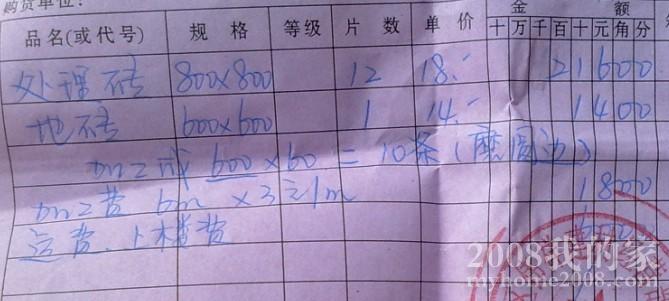 购货单位：
品名(或代号) 规格 等级 片数 单价 金额 十万千百十元角分
处理砖 800×800 12 18.- 21600
地砖 600×600 1 14.- 1400
加工成 600×60 = 10条（磨圆边）
加工费 6m ×3元/m 1800
运费、上楼费
2008我的家
myhome2008.com